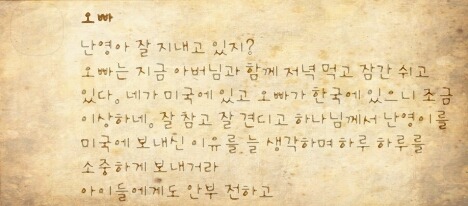 오빠
난영아 잘 지내고 있지?
오빠는 지금 아버님과 함께 저녁 먹고 잠간 쉬고
있다. 네가 미국에 있고 오빠가 한국에 있으니 조금
이상하네. 잘 참고 잘 견디고 하나님께서 난영이를
미국에 보내신 이유를 늘 생각하며 하루 하루를
소중하게 보내거라
아이들에게도 안부 전하고